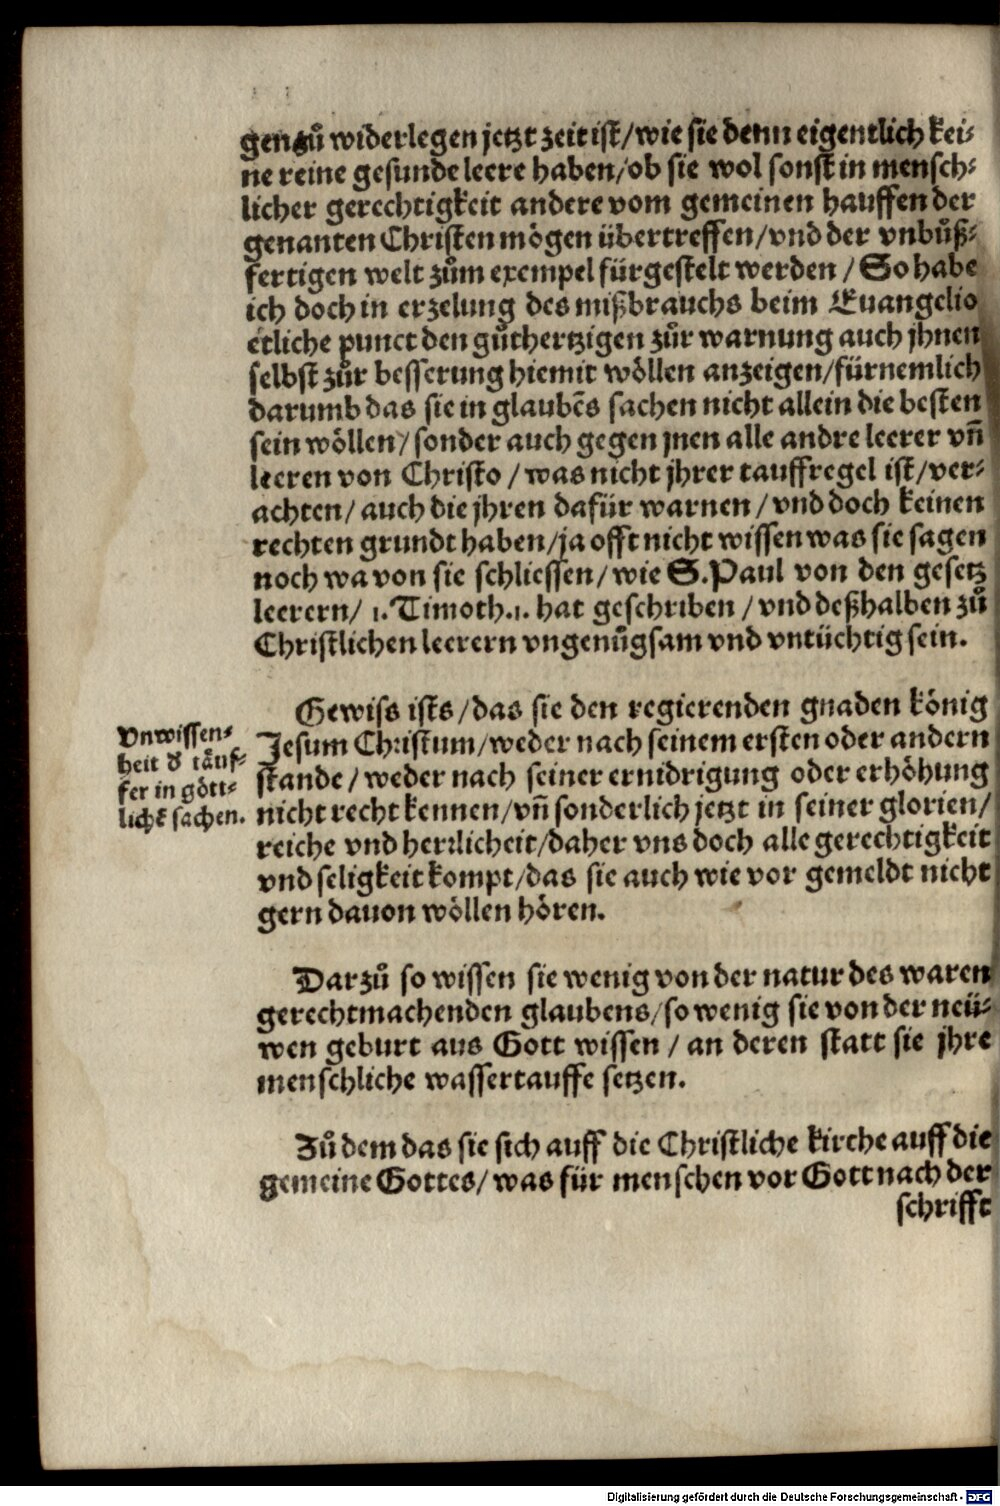 gen zů widerlegen jetzt zeit ist/wie sie denn eigentlich kei⸗
ne reine gesunde leere haben/ob sie wol sonst in mensch⸗
licher gerechtigkeit andere vom gemeinen hauffen der
genanten Christen mögen übertreffen/vnd der vnbůß⸗
fertigen welt zům exempel fürgestelt werden / So habe
ich doch in erzelung des mißbrauchs beim Euangelio
etliche punct den gůthertzigen zůr warnung auch jhnen
selbst zůr besserung hiemit wöllen anzeigen/fürnemlich
darumb das sie in glaubẽs sachen nicht allein die besten
sein wöllen/sonder auch gegen jnen alle andre leerer vñ
leeren von Christo / was nicht jhrer tauffregel ist/ver⸗
achten/ auch die jhren dafür warnen / vnd doch keinen
rechten grundt haben/ja offt nicht wissen was sie sagen
noch wa von sie schliessen/ wie S. Paul von den gesetz
leerern/ 1. Timoth. 1. hat geschriben / vnd deßhalben zů
Christlichen leerern vngenůgsam vnd vntüchtig sein.
Gewiss ists/das sie den regierenden gnaden könig
Jesum Christum/weder nach seinem ersten oder andern
stande / weder nach seiner ernidrigung oder erhöhung
nicht recht kennen/vñ sonderlich jetzt in seiner glorien/
reiche vnd herrlicheit/daher vns doch alle gerechtigkeit
vnd seligkeit kompt/das sie auch wie vor gemeldt nicht
gern dauon wöllen hören.
Vnwissen⸗
heit d̕ täuf⸗
fer in gött⸗
lichẽ sachen.
Darzů so wissen sie wenig von der natur des waren
gerechtmachenden glaubens/so wenig sie von der neü⸗
wen geburt aus Gott wissen / an deren statt sie jhre
menschliche wassertauffe setzen.
Zů dem das sie sich auff die Christliche kirche auff die
gemeine Gottes/ was für menschen vor Gott nach der
schrifft
Digitalisierung gefördert durch die Deutsche Forschungsgemeinschaft - DFG